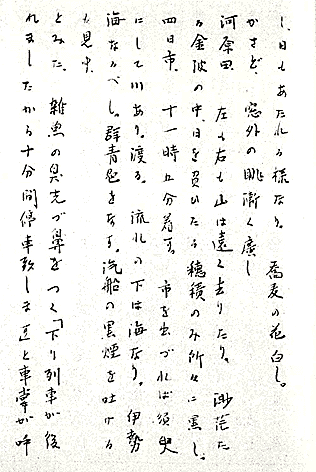 し、日もあたれる様なり。蕎麦の花白し。
かさど、窓外の眺漸く廣し
河原田 左も右も山は遠く去りたり。渺茫た
る金波の中、日を負ひたる穂積のみ所々に黒し。
四日市、十一時五分着す。市を出づれば須臾
にして川あり。渡る。流れの下は海なり。伊勢
海なるべし。群青色をなす。汽船の黒煙を吐ける
も見ゆ。
とみた。雑魚の臭先づ鼻をつく「下り列車が後
れましたから十分間停車致しま𛂞と車掌が呼